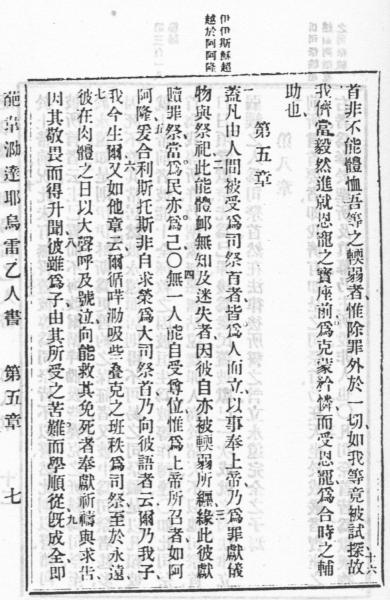 伊伊斯穌超
越於阿阿隆
首非不能體恤吾等之輭弱者惟除罪外於一切如我等竟被試探十六故
我儕當毅然進就恩寵之寳座前爲克蒙矜憐而受恩寵爲合時之輔
助也
第五章
一蓋凡由人間被受爲司祭首者皆爲人而立以事奉上帝乃爲罪獻儀
物與祭祀二此能體卹無知及迷失者因彼自亦被輭弱所纒三緣此彼獻
贖罪祭當爲民亦爲己〇四無一人能自受尊位惟爲上帝所召者如阿
阿隆五爰合利斯托斯非自求榮爲大司祭首乃向彼語者云爾乃我子
我今生爾六又如他章云爾循哶泐吸些叠克之班秩爲司祭至於永遠
七彼在肉體之日以大聲呼及號泣向能救其免死者奉獻祈禱與求告
因其敬畏而得升聞八彼雖爲子由其所受之苦難而學順從九旣成全即
葩韋泐達耶烏雷乙人書 第五章 七